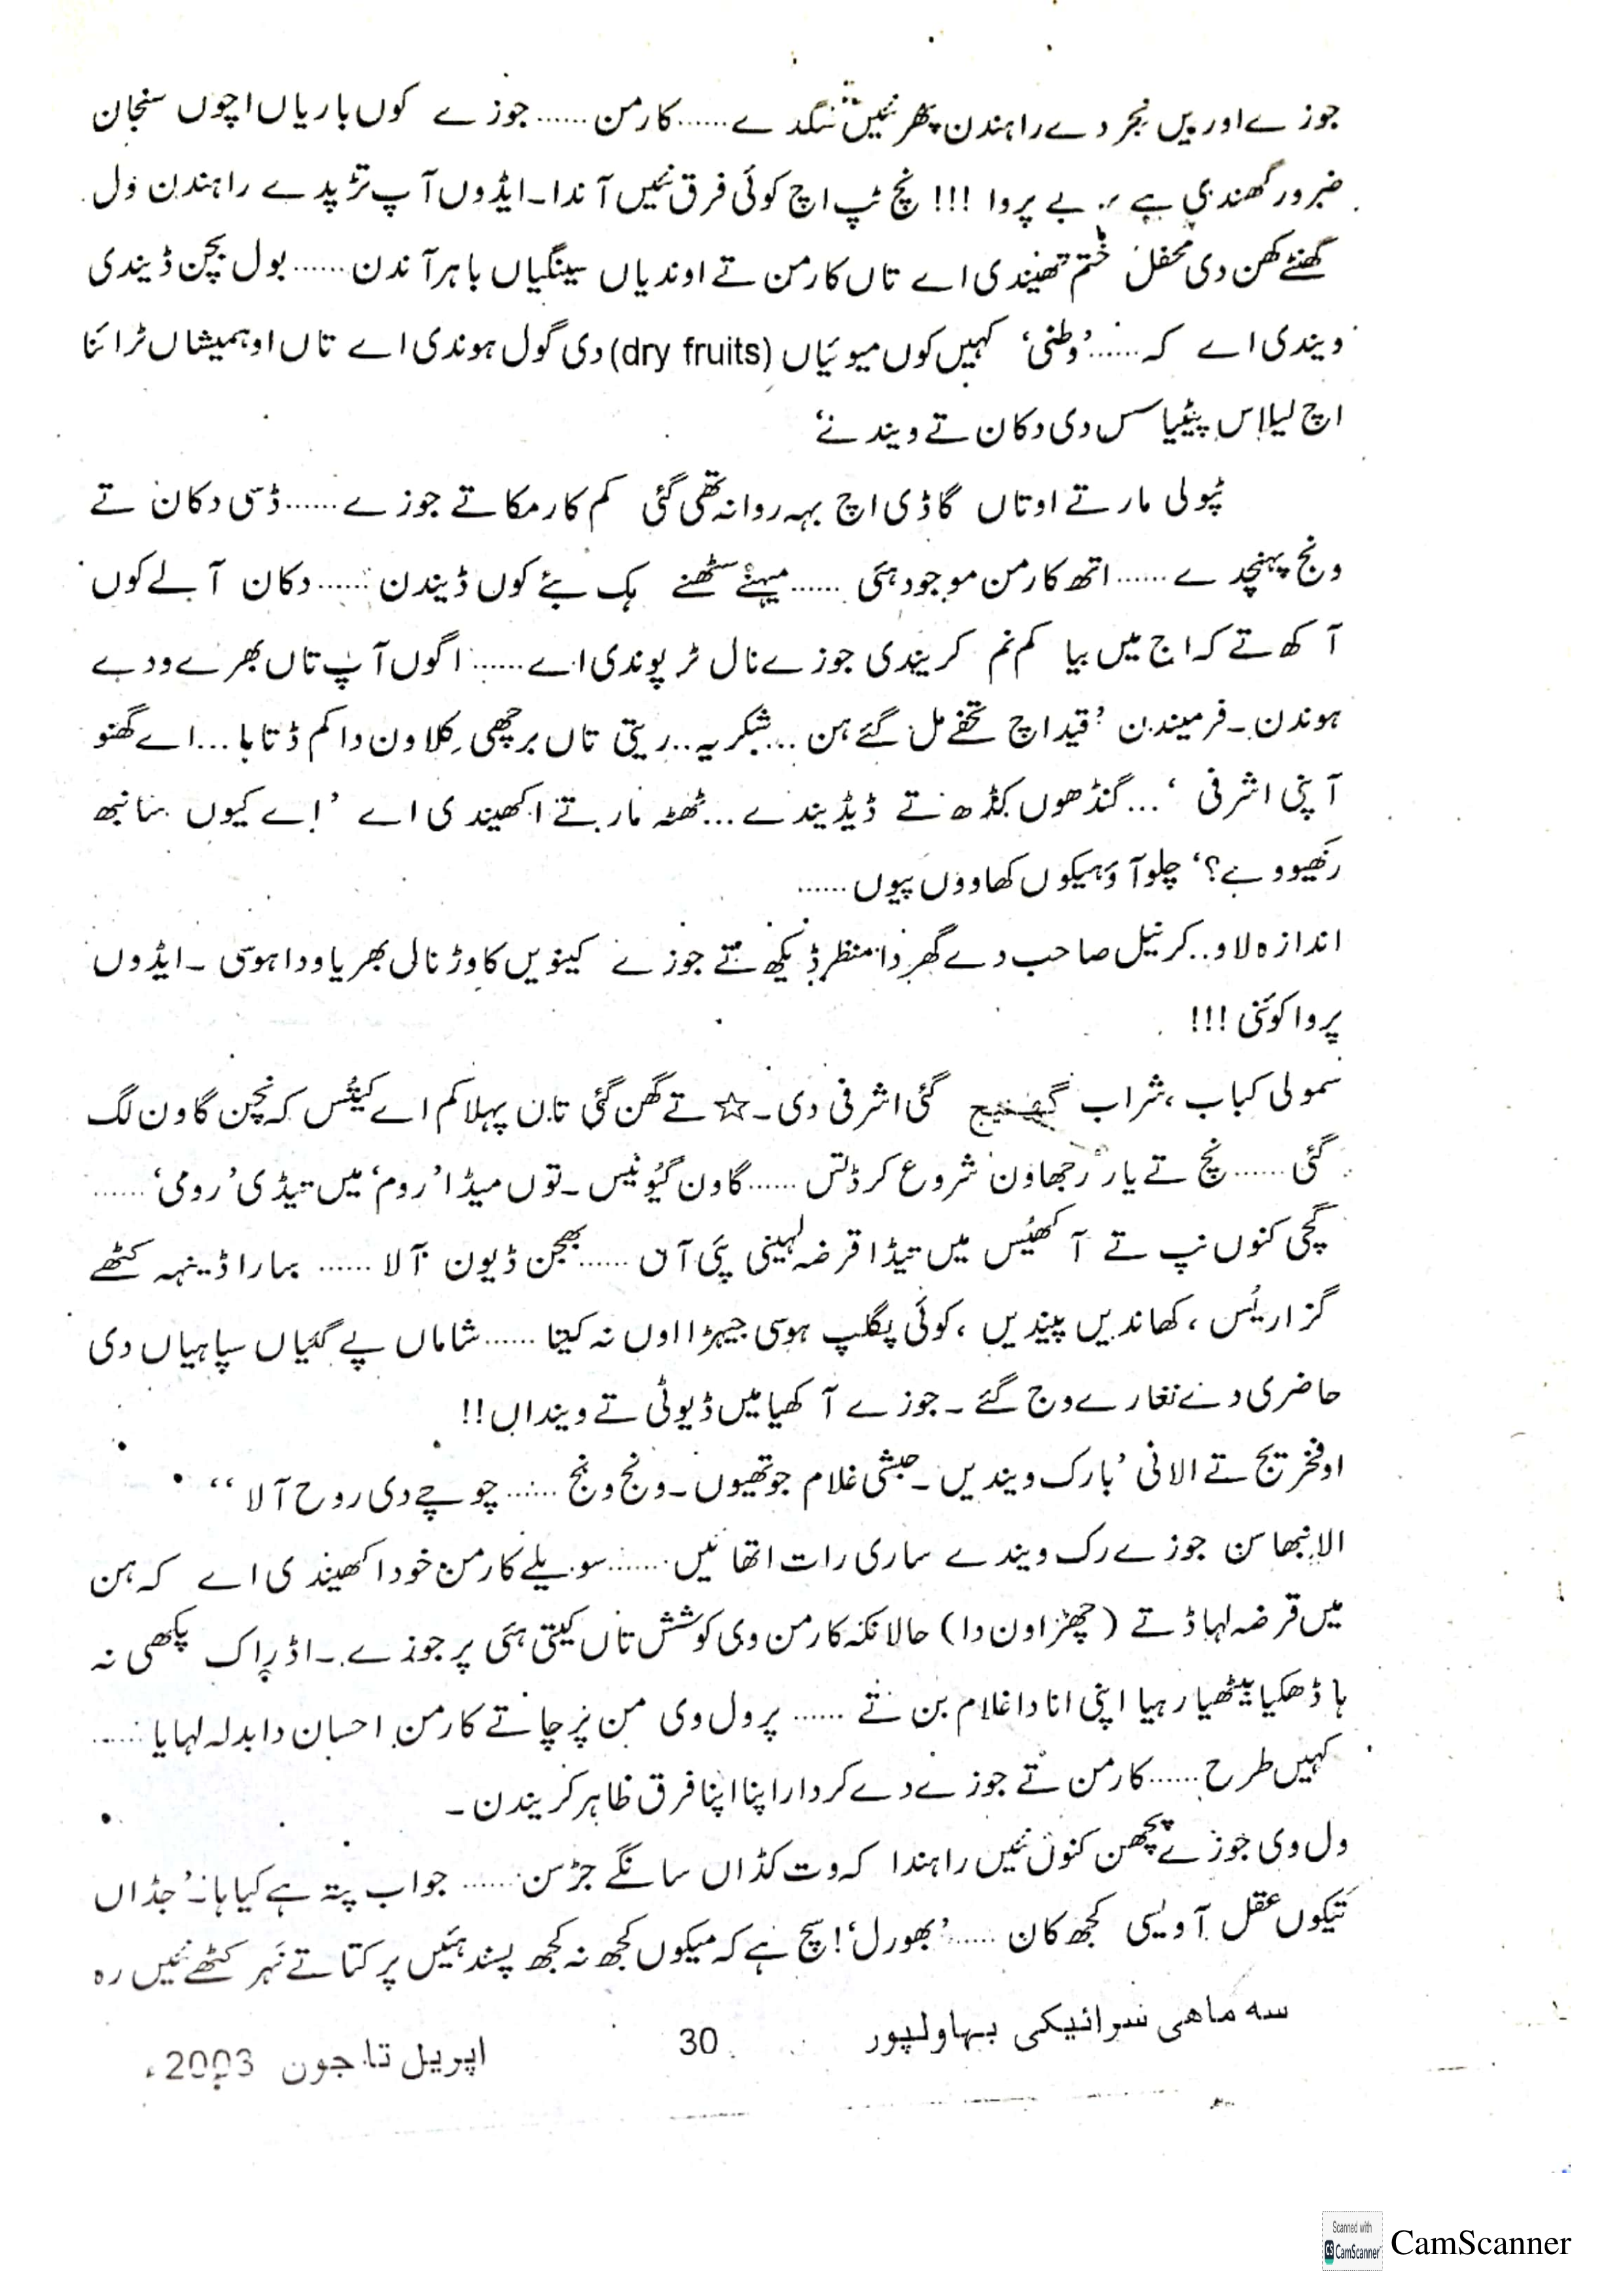 جوزے اوریں نجر دے راہندن پھر نئیں سگدے……کارمن……جوزے کوں باریاں اچوں سنجان
ضرور گھندی ہے بے پروا !!! نچ ٹپ اچ کوئی فرق نئیں آندا۔ایڈوں آپ تڑپدے راہندن وَل
گھنٹے کھن دی محفل ختم تھیندی اے تاں کارمن تے اوندیاں سینگیاں باہر آندن……بول بچن ڈیندی
ویندی اے کہ……’وطنی‘ کہیں کوں میوئیاں (dry fruits) دی گول ہوندی اے تاں او ہمیشاں ٹرائنا
اچ لیلاس پیٹیا سس دی دکان تے ویندنے‘
ٹپولی مارتے او تاں گاڈی اچ بہہ روانہ تھی گئی کم کار مکاتے جوزے……ڈسی دکان تے
ونج پہنچدے……اتھ کارمن موجود ہئی……میہنے سٹھنے ہک بئے کوں ڈیندن……دکان آلے کوں
آکھ تے کہ اج میں بیا کم نم کریندی جوزے نال ٹر پوندی اے……اگوں آپ تاں بھرے ودے
ہوندن۔فرمیندن ’قید اچ تحفے مل گئے ہن…شکریہ..ریتی تاں برچھی کلاون دا کم ڈتا ہا…اے گھنو
آپنی اشرفی ‘…گنڈھوں کڈھ تے ڈیڈیندے…ٹھٹہ مارتے اکھیندی اے ’اے کیوں سانبھ
رکھیووے؟‘ چلو آؤ ہیکوں کھاووں پیوں……
اندازہ لاو..کرنیل صاحب دے گھر دا منظر ڈیکھ تے جوزے کینویں کاوڑ نالی بھریا ودا ہوسی ۔ایڈوں
پروا کوئنی !!!
سمولی کباب ،شراب گھنیج گئی اشرفی دی۔☆تے گھن گئی تاں پہلا کم اے کیتُس کہ نچن گاون لگ
گئی……نچ تے یار رجھاون شروع کر ڈتس……گاون گیوُنیس۔توں میڈا ’روم‘ میں تیڈی ’رومی‘……
گچی کنوں نپ تے آکھیُس میں تیڈا قرضہ لہینی پئی آں……بھجن ڈیون آلا……سارا ڈینہہ کٹھے
گزاریُس ،کھاندیں پیندیں ،کوئی پگلپ ہوسی جیہڑا اوں نہ کیتا……شاماں پے گئیاں سپاہیاں دی
حاضری دے نغارے وج گئے ۔جوزے آکھیا میں ڈیوٹی تے وینداں!!
او فخریج تے الانی ’بارک ویندیں۔حبشی غلام جو تھیوں۔ونج ونج……چوچے دی روح آلا ‘‘
الانبھا سن جوزے رک ویندے ساری رات اتھائیں……سویلے کارمن خود اکھیندی اے کہ ہن
میں قرضہ لہا ڈتے (چھڑاون دا) حالانکہ کارمن وی کوشش تاں کیتی ہئی پر جوزے۔اڈراک پکھی نہ
ہا ڈھکیا بیٹھیا رہیا اپنی انا دا غلام بن تے……پر ول وی من پرچاتے کارمن احسان دا بدلہ لہایا……
کہیں طرح……کارمن تے جوزے دے کردار اپنا اپنا فرق ظاہر کریندن۔
ول وی جوزے پچھن کنوں نئیں راہندا کہ وت کڈاں سانگے جڑسن……جواب پتہ ہے کیا ہا نہ ’جڈاں
تیکوں عقل آویسی کجھ کان……’بھورل‘! سچ ہے کہ میکوں کجھ نہ کجھ پسند ہئیں پر کتا تے نہر کٹھے نئیں رہ
سہ ماھی سرائیکی بہاولپور 30 اپریل تا جون 2003ء
Scanned with CamScanner CamScanner